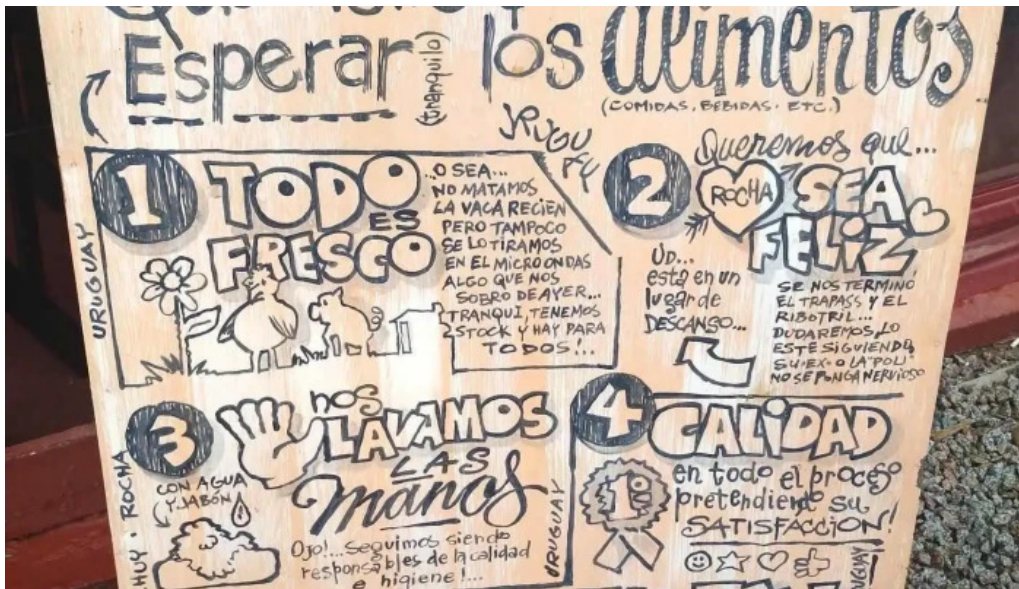 Esperar
(tranquilo)
los alimentos
(COMIDAS, BEBIDAS. ETC.)
URUGUAY
1 TODO
ES
FRESCO
..O SEA...
NO MATAMOS
LA VACA RECIEN
PERO TAMPOCO
SE LO TIRAMOS
EN EL MICROONDAS
ALGO QUE NOS
SOBRO DE AYER...
TRANQUI, TENEMOS
STOCK Y HAY PARA
TODOS!...
2 Queremos que...
ROCHA
SEA
FELIZ
UD...
está en un
lugar de
DESCANSO...
SE NOS TERMINÓ
EL TRAPASS Y EL
RIBOTRIL...
DUDAREMOS, LO
ESTE SIGUIENDO
SU EX O LA "POLI"
NO SE PONGA NERVIOSO
CHUY · ROCHA
3 nos
LAVAMOS
LAS
manos
CON AGUA
Y JABÓN
Ojo!... Seguimos siendo
responsables de la calidad
e higiene!...
URUGUAY
4 CALIDAD
en todo el proceso
pretendiendo su
SATISFACCION!
1º